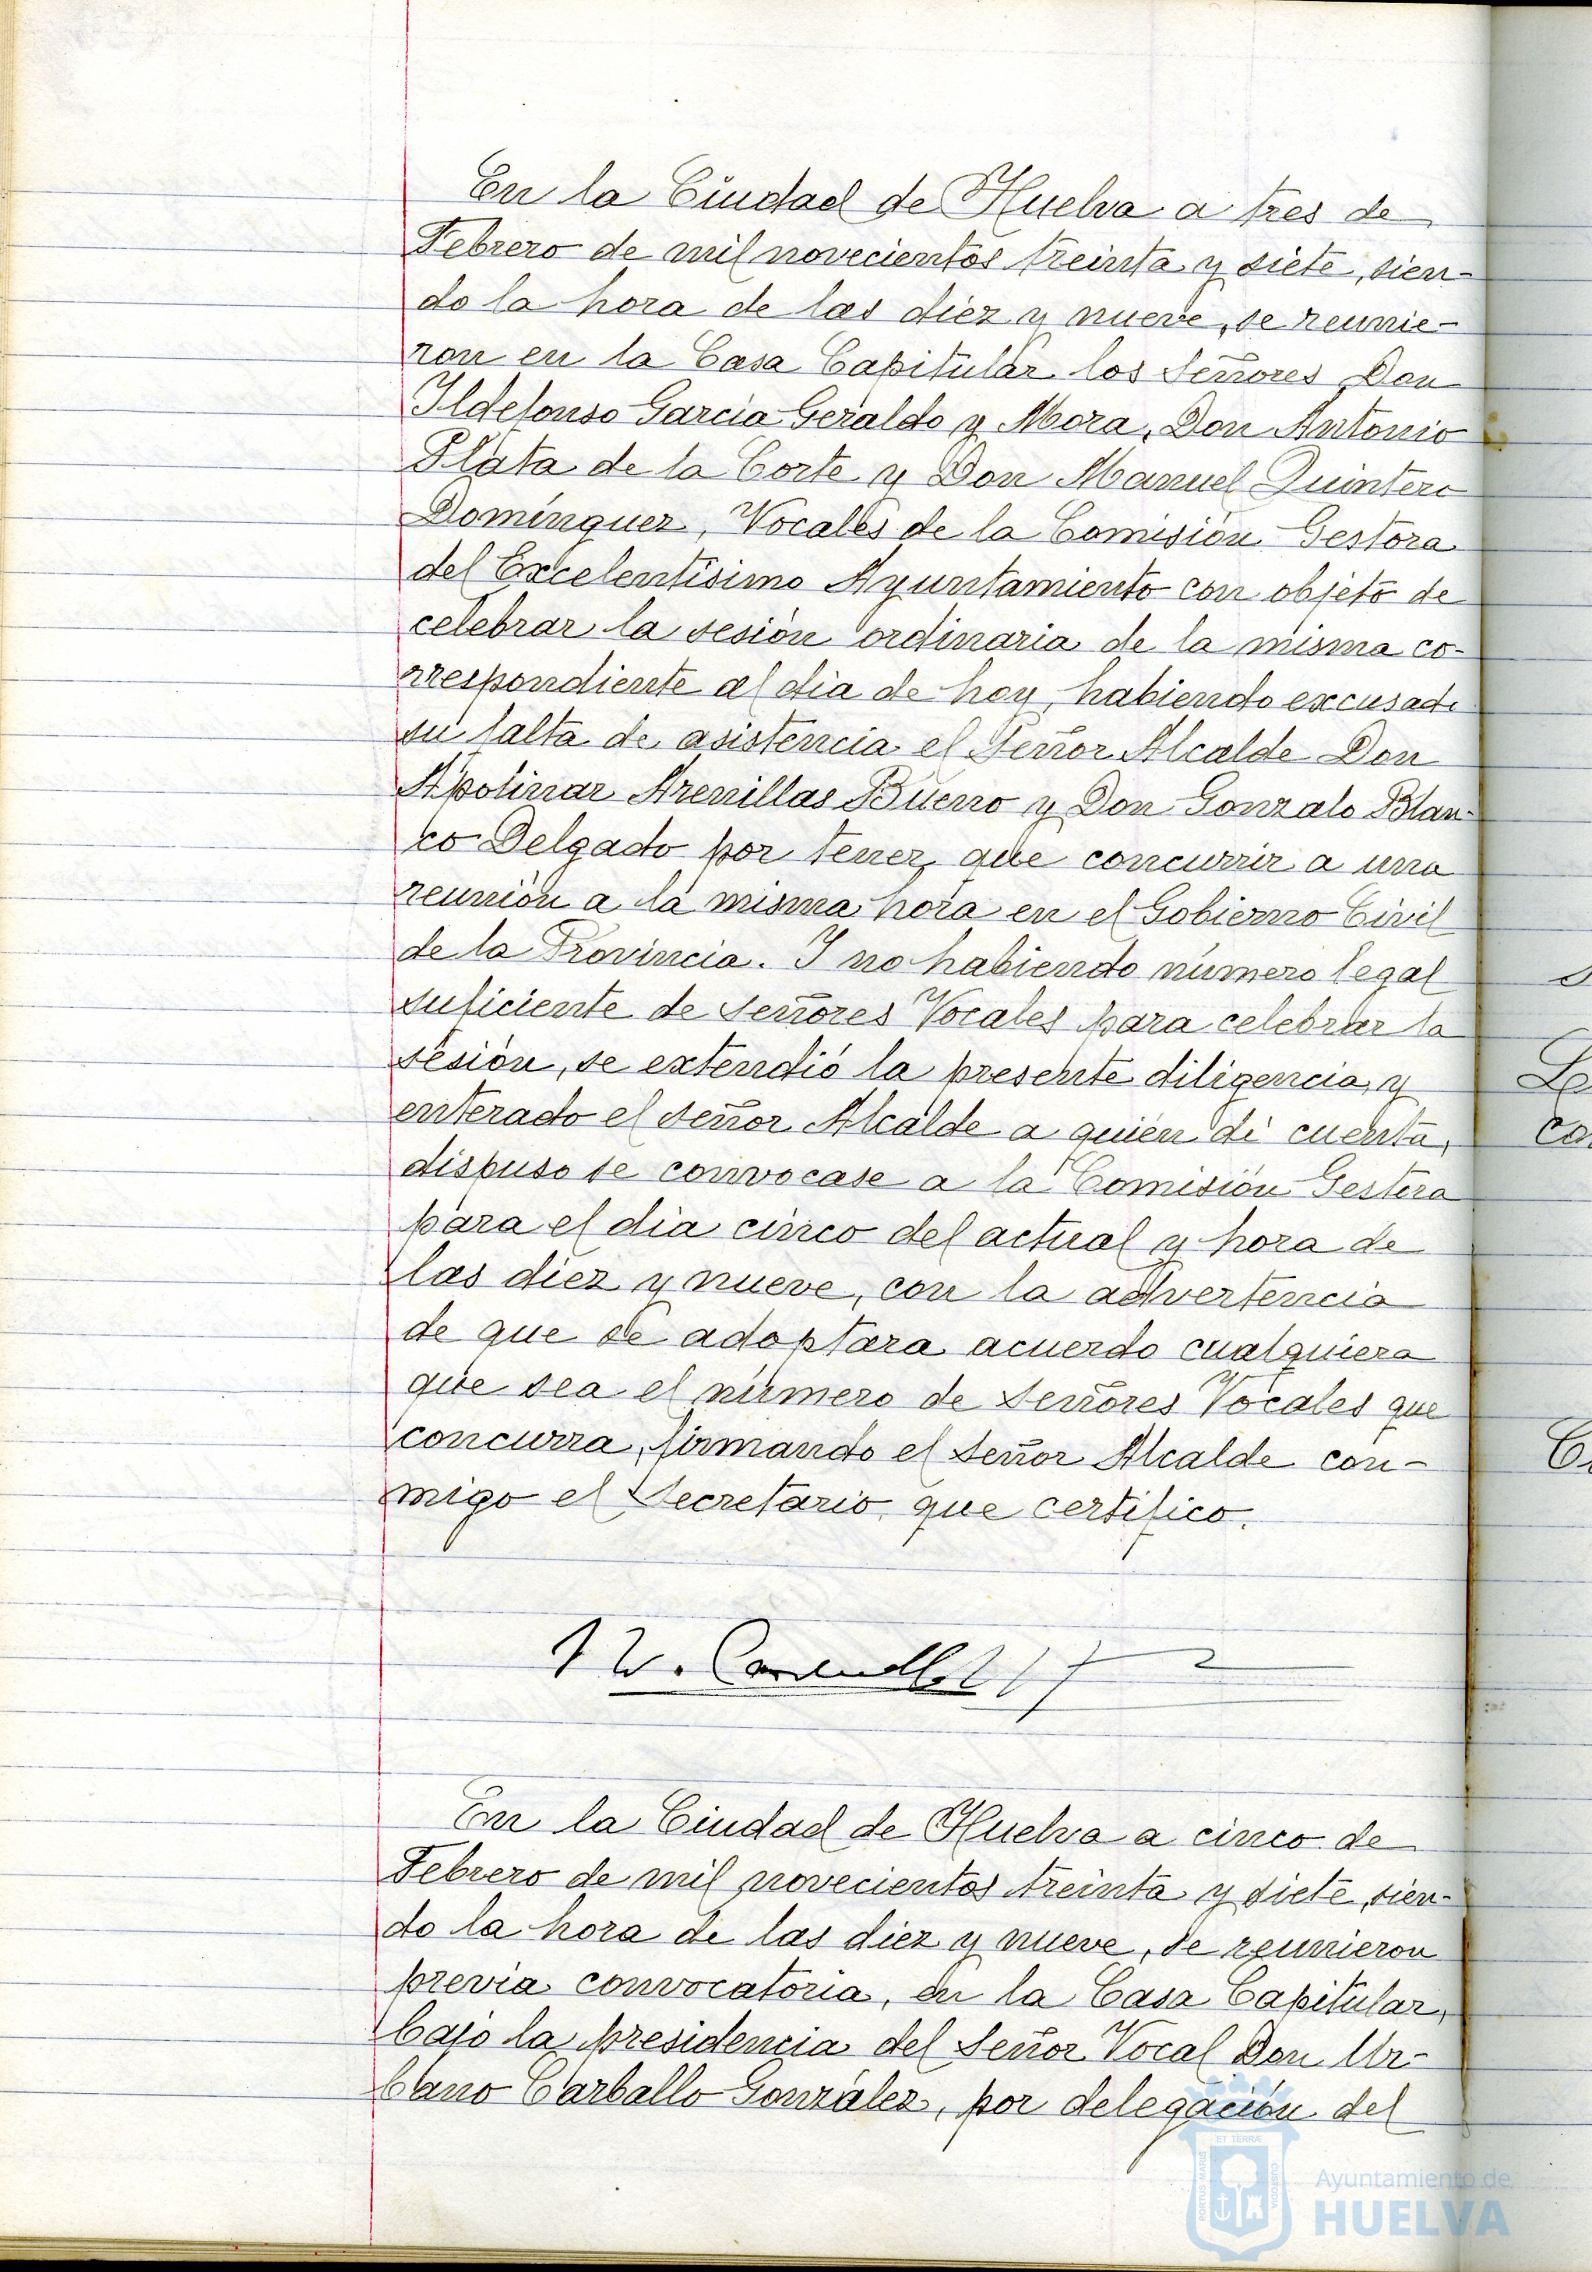 En la Ciudad de Huelva a tres de
Febrero de mil novecientos treinta y siete, sien-
do la hora de las diez y nueve, se reunie-
ron en la Casa Capitular los Señores Don
Ildefonso García Geraldo y Mora, Don Antonio
Plata de la Corte y Don Manuel Quintero
Domínguez, Vocales de la Comisión Gestora
del Excelentísimo Ayuntamiento con objeto de
celebrar la sesión ordinaria de la misma co-
rrespondiente al dia de hoy, habiendo excusado
su falta de asistencia el Señor Alcalde Don
Apolinar Arenillas Bueno y Don Gonzalo Blan-
co Delgado por tener que concurrir a una
reunión a la misma hora en el Gobierno Civil
de la Provincia. Y no habiendo número legal
suficiente de señores Vocales para celebrar la
sesión, se extendió la presente diligencia, y
enterado el señor Alcalde a quién dí cuenta,
dispuso se convocase a la Comisión Gestora
para el dia cinco del actual y hora de
las diez y nueve, con la advertencia
de que se adoptara acuerdo cualquiera
que sea el número de Señores Vocales que
concurra, firmando el Señor Alcalde con-
migo el Secretario, que certifico.
En la Ciudad de Huelva a cinco de
Febrero de mil novecientos treinta y siete, sien-
do la hora de las diez y nueve, se reunieron
previa convocatoria, en la Casa Capitular,
bajo la presidencia del Señor Vocal Don Ur-
bano Carballo González, por delegación del
PORTUS MARIS ET TERRÆ CUSTODIA
Ayuntamiento de
HUELVA